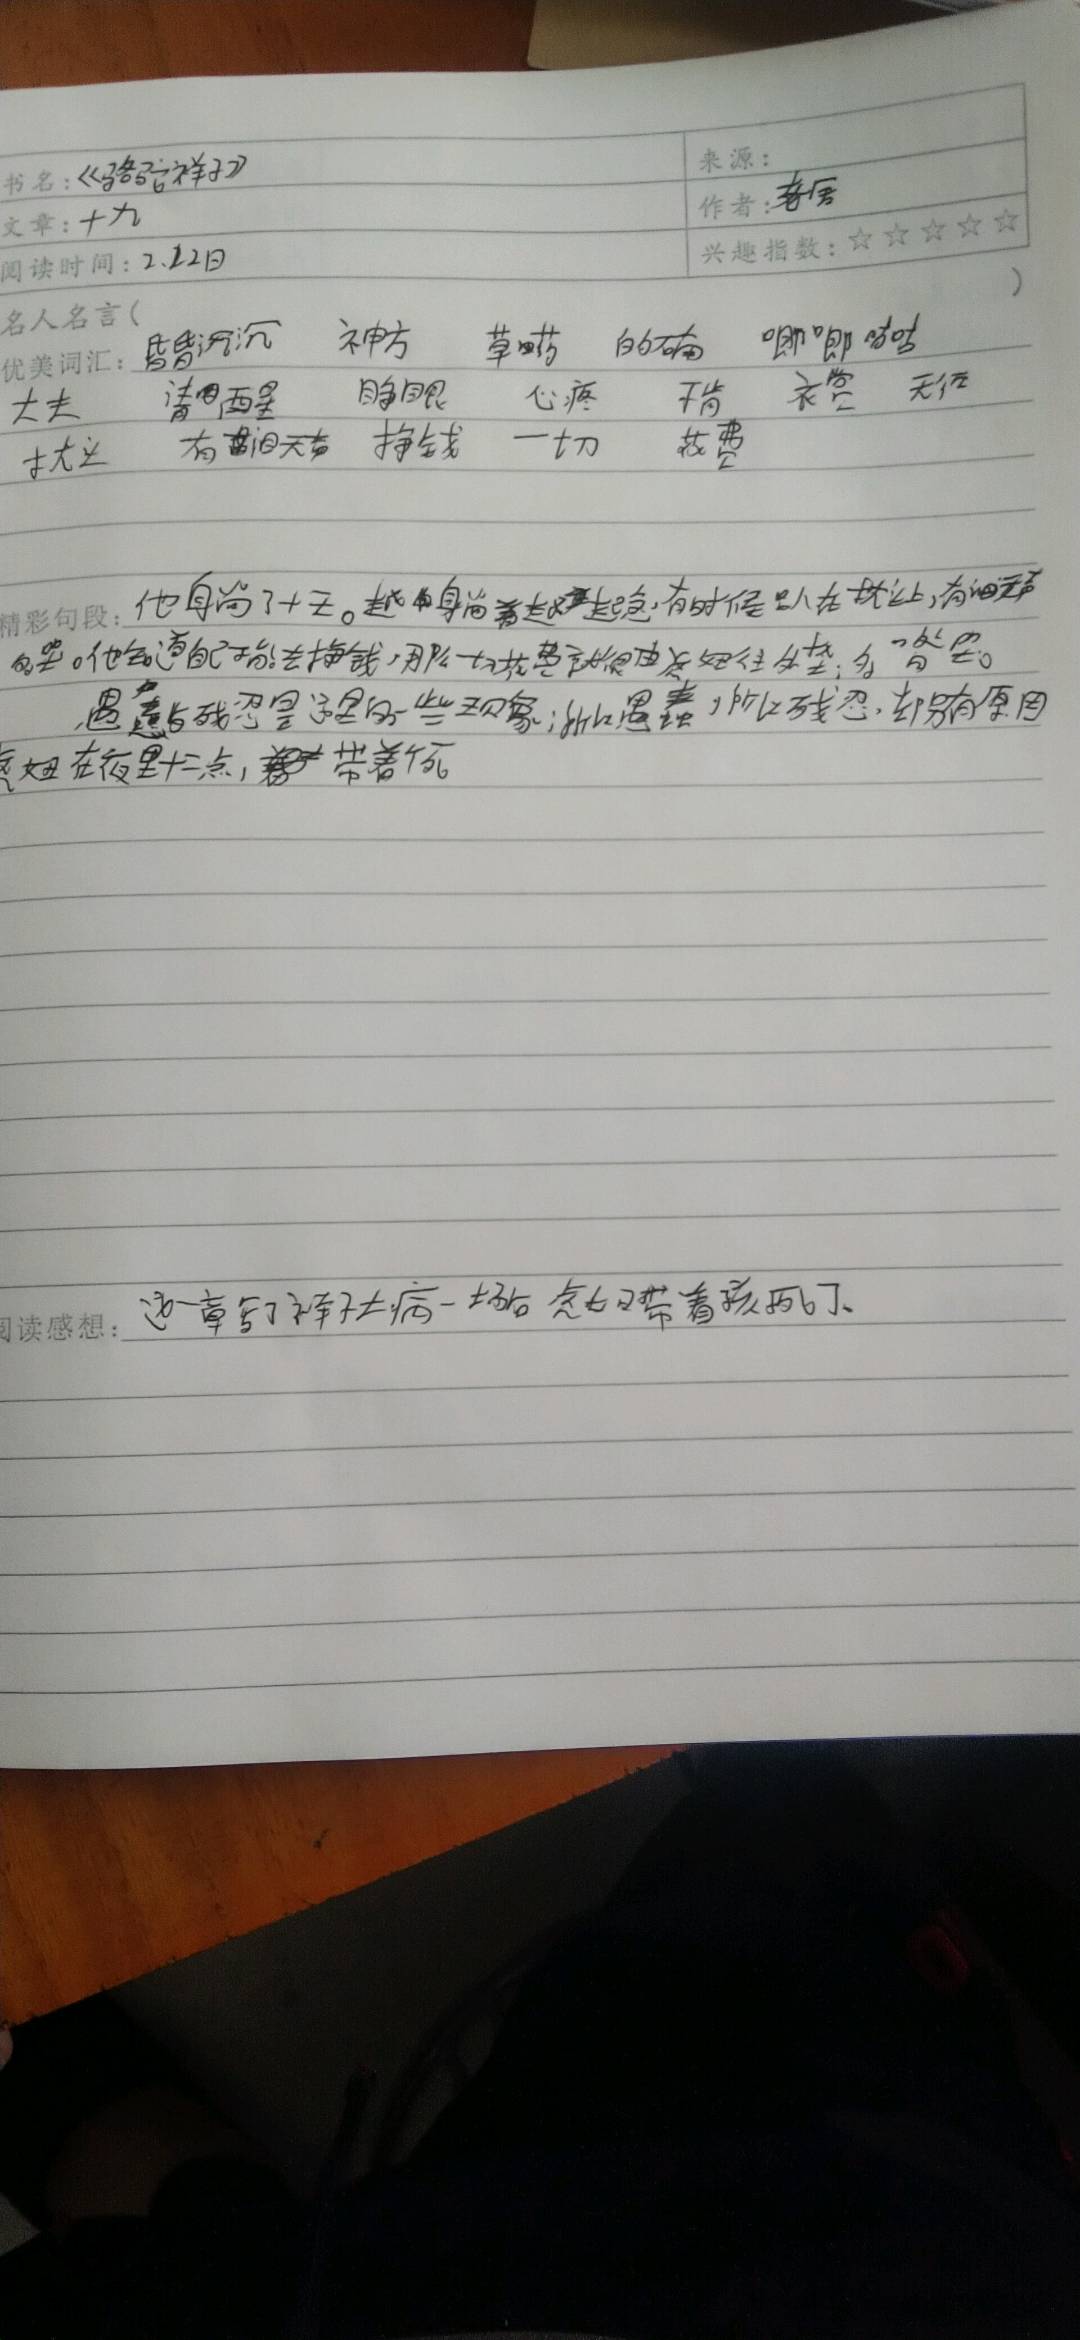 书名:《骆驼祥子》
来源:
文章:十九
作者:老舍
阅读时间:2.12日
兴趣指数:☆☆☆☆☆
名人名言( )
优美词汇:昏昏沉沉 神方 草药 的确 唧唧咕咕
大夫 清醒 睁眼 心疼 不肯 衣裳
枕边 有泪无声 挣钱 一切 花费
精彩句段:他身尚了十天。越 越起急,有时候 在枕上,有泪无声
的哭。他知道自己不能去挣钱,那么一切花费就 由虎妞往外垫;
愚蠢与残忍是 里的一些现象;所以愚蠢,所以残忍,却另有原因
虎妞在夜里十二点, 带着个死
阅读感想:这一章写了祥子大病一场后 虎妞带着孩死了。